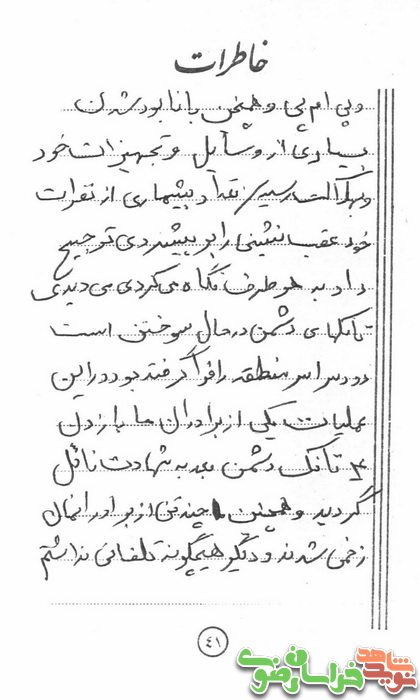 خاطرات
و پی ام پی و همچنین با نابود شدن
بسیاری از وسایل و تجهیزات خود
و بهلاکت رسیدن تعداد بیشماری از نفرات
خود عقب نشینی را بر پیشروی ترجیح
داد به هر طرف نگاه می کردی می دیدی
تانکهای دشمن در حال سوختن است
دود سراسر منطقه را فرا گرفته بود در این
عملیات یکی از برادران ما با زدن
۴ تانک دشمن بعد به شهادت نائل
گردید و همچنین چند تن از برادرانمان
زخمی شدند و دیگر هیچگونه تلفاتی نداشتم
۴۱
نوید شاهد
خراسان رضوی